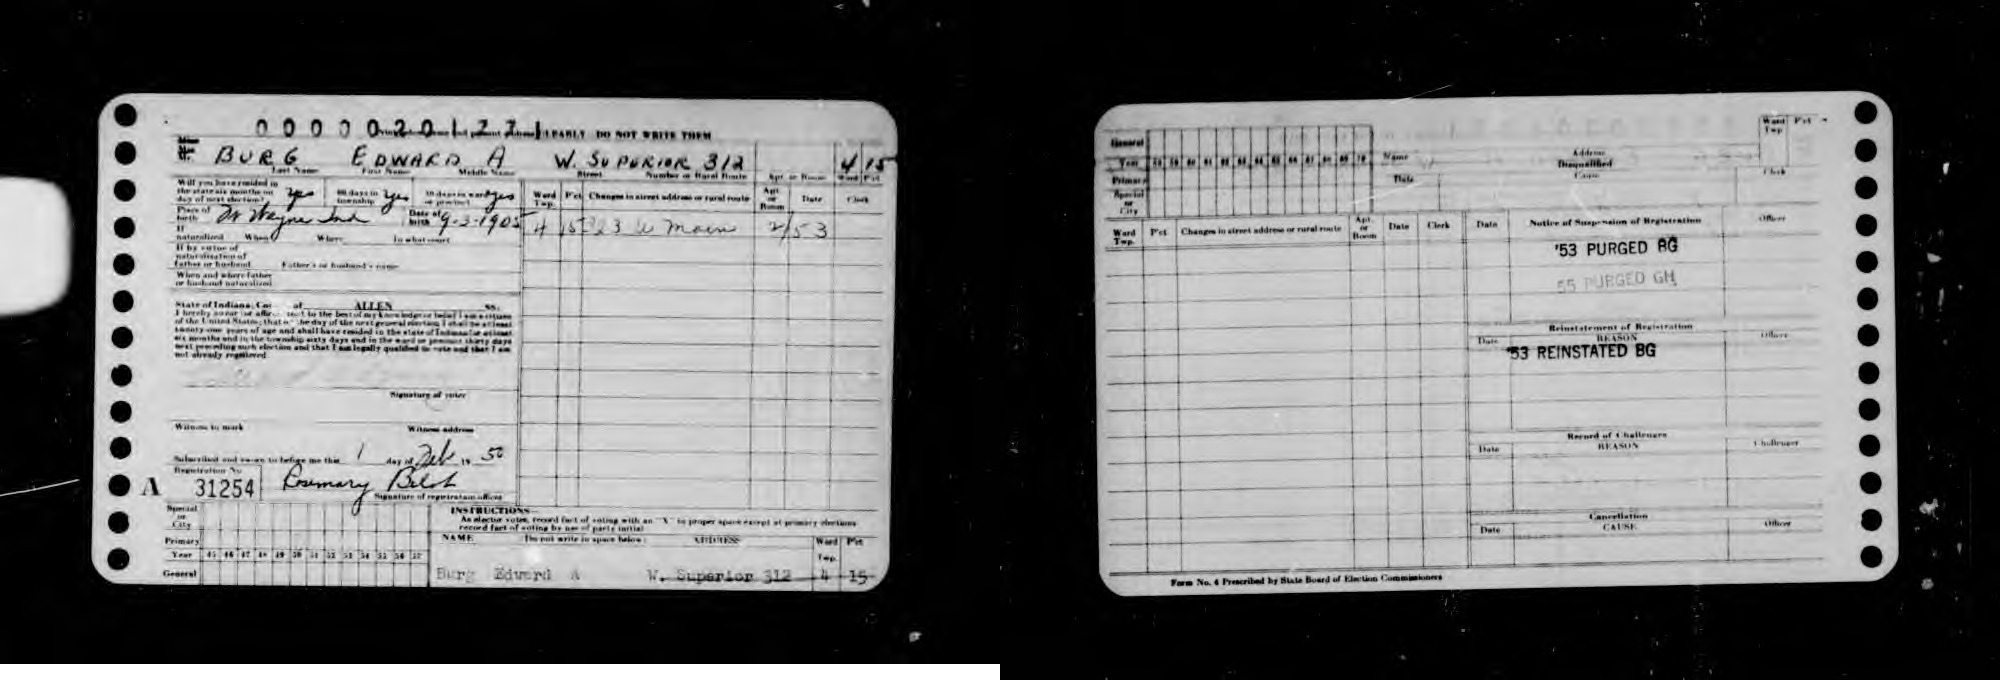 0 0 0 0 0 2 0 1 2 7 1 EARLY DO NOT WRITE THEM
BURG EDWARD A W. SUPERIOR 312 4 15
Last Name First Name Middle Name Street Number or Rural Route Apt or Room Ward Pct
Will you have resided in
the state six months on
day of next election? Yes 60 days in township Yes 30 days in ward or precinct yes
Place of birth Ft Wayne Ind Date of birth 9-3-1905
If naturalized When Where In what court
If by virtue of
naturalization of
father or husband Father's or husband's name
When and where father
or husband naturalized
Ward Twp. P'ct Changes in street address or rural route Apt or Room Date Clerk
4 15 323 W Main 2/53
State of Indiana, Co of ALLEN ss.
I hereby swear or affirm that to the best of my knowledge or belief I am a citizen
of the United States; that on the day of the next general election I shall be at least
twenty-one years of age and shall have resided in the state of Indiana for at least
six months and in the township sixty days and in the ward or precinct thirty days
next preceding such election and that I am legally qualified to vote and that I am
not already registered
Signature of voter
Witness to mark Witness address
Subscribed and sworn to before me this 1 day of Feb 19 50
Registration No
A 31254 Rosemary
Signature of registration officer
Special or City
Primary
Year 45 46 47 48 49 50 51 52 53 54 55 56 57
General
INSTRUCTIONS—
An elector votes, record fact of voting with an "X" in proper space except at primary elections
record fact of voting by use of party initial
NAME Do not write in space below: ADDRESS Ward Twp. P'ct
Burg Edward A W. Superior 312 4 15
General
Year 58 59 60 61 62 63 64 65 66 67 68 69 70
Primary
Special or City
Name Address Ward Twp P'ct
Disqualified
Date Cause Clerk
Ward Twp. P'ct Changes in street address or rural route Apt. or Room Date Clerk
Date Notice of Suspension of Registration Officer
'53 PURGED BG
55 PURGED GM
Reinstatement of Registration
Date REASON Officer
'53 REINSTATED BG
Record of Challenges
Date REASON Challenger
Cancellation
Date CAUSE Officer
Form No. 4 Prescribed by State Board of Election Commissioners